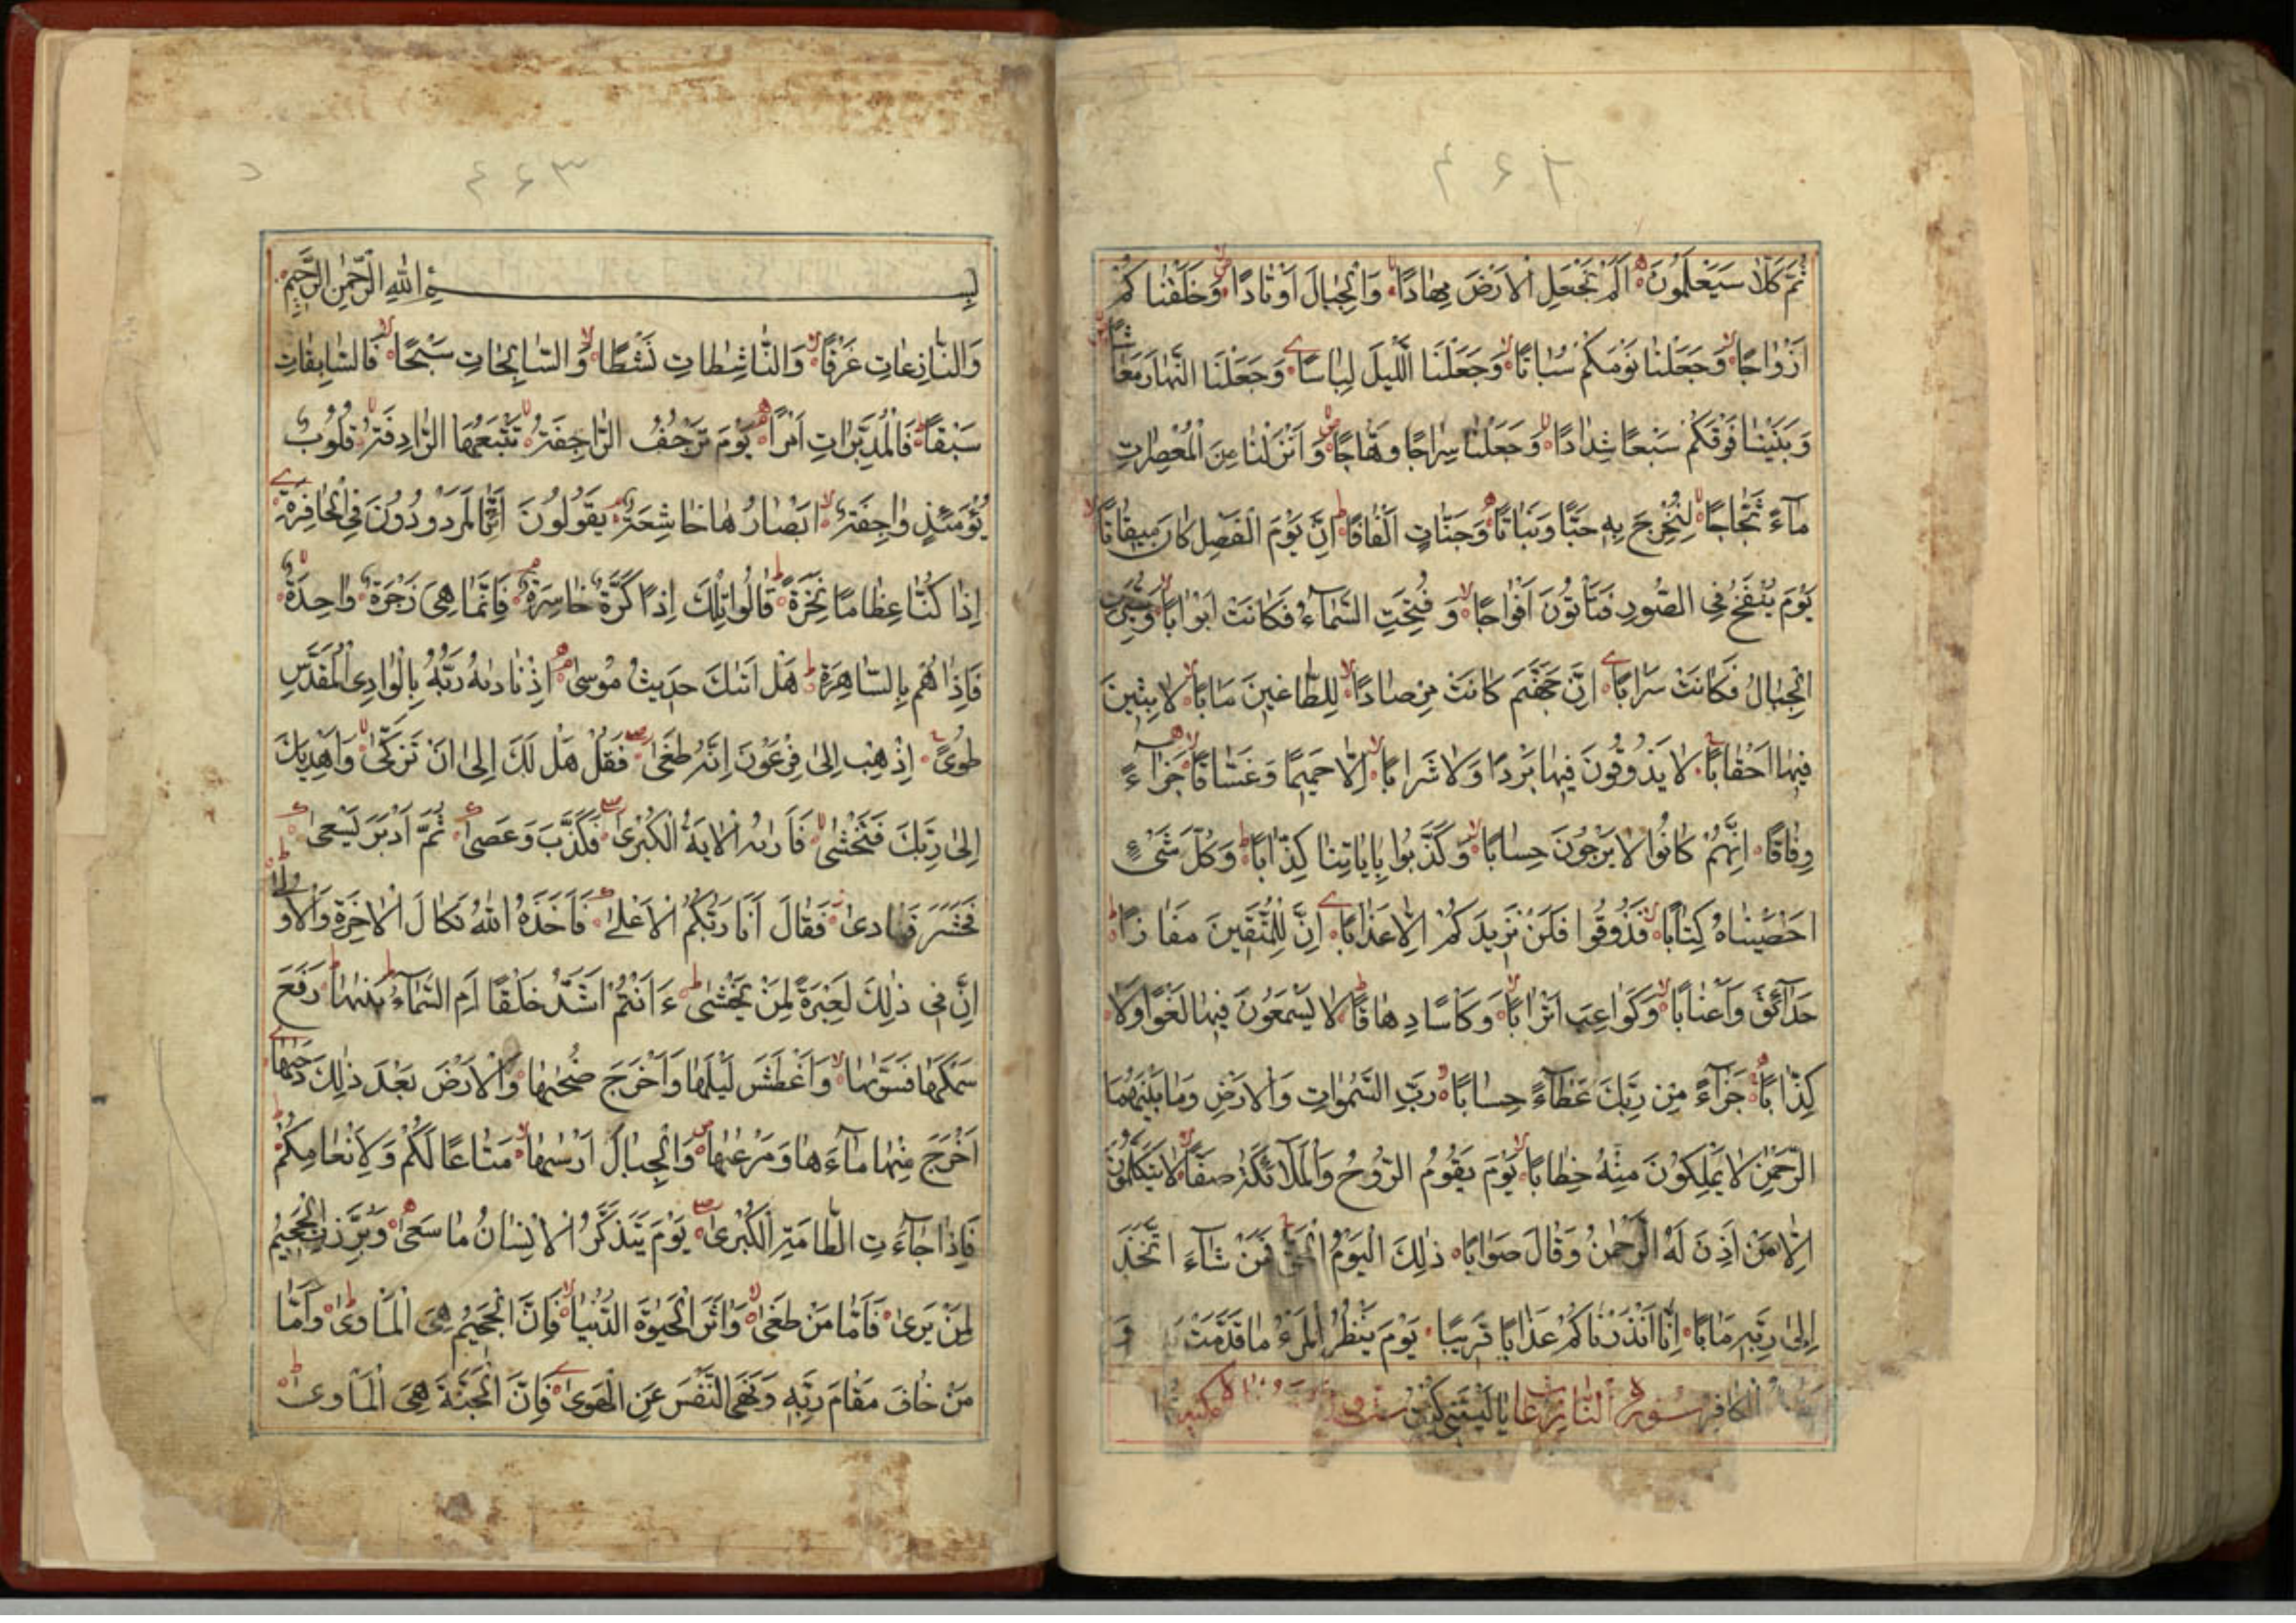 ۴۶۲
ثُمَّ كَلَّا سَيَعْلَمُونَ اَلَمْ نَجْعَلِ الْاَرْضَ مِهَادًا وَالْجِبَالَ اَوْتَادًا وَخَلَقْنَا كُمْ
اَزْوَاجًا وَجَعَلْنَا نَوْمَكُمْ سُبَاتًا وَجَعَلْنَا الَّيْلَ لِبَاسًا وَجَعَلْنَا النَّهَارَ مَعَاشًا
وَبَنَيْنَا فَوْقَكُمْ سَبْعًا شِدَادًا وَجَعَلْنَا سِرَاجًا وَهَّاجًا وَاَنْزَلْنَا مِنَ الْمُعْصِرٰتِ
مَآءً ثَجَّاجًا لِنُخْرِجَ بِهٖ حَبًّا وَنَبَاتًا وَجَنَّاتٍ اَلْفَافًا اِنَّ يَوْمَ الْفَصْلِ كَانَ مِيقَاتًا
يَوْمَ يُنْفَخُ فِى الصُّورِ فَتَاْتُونَ اَفْوَاجًا وَ فُتِحَتِ السَّمَآءُ فَكَانَتْ اَبْوَابًا وَسُيِّرَتِ
الْجِبَالُ فَكَانَتْ سَرَابًا اِنَّ جَهَنَّمَ كَانَتْ مِرْصَادًا لِلطَّاغِينَ مَاٰبًا لَابِثِينَ
فِيهَا اَحْقَابًا لَا يَذُوقُونَ فِيهَا بَرْدًا وَلَا شَرَابًا اِلَّا حَمِيمًا وَغَسَّاقًا جَزَآءً
وِفَاقًا اِنَّهُمْ كَانُوا لَا يَرْجُونَ حِسَابًا وَكَذَّبُوا بِاٰيَاتِنَا كِذَّابًا وَكُلَّ شَىْءٍ
اَحْصَيْنَاهُ كِتَابًا فَذُوقُوا فَلَنْ نَزِيدَ كُمْ اِلَّا عَذَابًا اِنَّ لِلْمُتَّقِينَ مَفَازًا
حَدَآئِقَ وَاَعْنَابًا وَكَوَاعِبَ اَتْرَابًا وَكَاْسًا دِهَاقًا لَا يَسْمَعُونَ فِيهَا لَغْوًا وَلَا
كِذَّابًا جَزَآءً مِنْ رَبِّكَ عَطَآءً حِسَابًا رَبِّ السَّمٰوَاتِ وَالْاَرْضِ وَمَا بَيْنَهُمَا
الرَّحْمٰنِ لَا يَمْلِكُونَ مِنْهُ خِطَابًا يَوْمَ يَقُومُ الرُّوحُ وَالْمَلَآئِكَةُ صَفًّا لَا يَتَكَلَّمُونَ
اِلَّا مَنْ اَذِنَ لَهُ الرَّحْمٰنُ وَقَالَ صَوَابًا ذٰلِكَ الْيَوْمُ الْحَقُّ فَمَنْ شَآءَ اتَّخَذَ
اِلٰى رَبِّهٖ مَاٰبًا اِنَّا اَنْذَرْنَاكُمْ عَذَابًا قَرِيبًا يَوْمَ يَنْظُرُ الْمَرْءُ مَا قَدَّمَتْ وَ
الْكَافِرُ سُورَةُ النَّازِعَاتِ يَالَيْتَنِى كُنْتُ
۴۶۳
بِسْمِ اللّٰهِ الرَّحْمٰنِ الرَّحِيمِ
وَالنَّازِعَاتِ غَرْقًا وَالنَّاشِطَاتِ نَشْطًا وَالسَّابِحَاتِ سَبْحًا فَالسَّابِقَاتِ
سَبْقًا فَالْمُدَبِّرَاتِ اَمْرًا يَوْمَ تَرْجُفُ الرَّاجِفَةُ تَتْبَعُهَا الرَّادِفَةُ قُلُوبٌ
يَوْمَئِذٍ وَاجِفَةٌ اَبْصَارُهَا خَاشِعَةٌ يَقُولُونَ اَئِنَّا لَمَرْدُودُونَ فِى الْحَافِرَةِ
اِذَا كُنَّا عِظَامًا نَخِرَةً قَالُوا تِلْكَ اِذًا كَرَّةٌ خَاسِرَةٌ فَاِنَّمَا هِىَ زَجْرَةٌ وَاحِدَةٌ
فَاِذَا هُمْ بِالسَّاهِرَةِ هَلْ اَتٰىكَ حَدِيثُ مُوسٰى اِذْ نَادٰىهُ رَبُّهُ بِالْوَادِى الْمُقَدَّسِ
طُوًى اِذْهَبْ اِلٰى فِرْعَوْنَ اِنَّهُ طَغٰى فَقُلْ هَلْ لَكَ اِلٰى اَنْ تَزَكّٰى وَاَهْدِيَكَ
اِلٰى رَبِّكَ فَتَخْشٰى فَاَرٰىهُ الْاٰيَةَ الْكُبْرٰى فَكَذَّبَ وَعَصٰى ثُمَّ اَدْبَرَ يَسْعٰى
فَحَشَرَ فَنَادٰى فَقَالَ اَنَا رَبُّكُمُ الْاَعْلٰى فَاَخَذَهُ اللّٰهُ نَكَالَ الْاٰخِرَةِ وَالْاُولٰى
اِنَّ فِى ذٰلِكَ لَعِبْرَةً لِمَنْ يَخْشٰى ءَاَنْتُمْ اَشَدُّ خَلْقًا اَمِ السَّمَآءُ بَنٰىهَا رَفَعَ
سَمْكَهَا فَسَوّٰىهَا وَاَغْطَشَ لَيْلَهَا وَاَخْرَجَ ضُحٰىهَا وَالْاَرْضَ بَعْدَ ذٰلِكَ دَحٰىهَا
اَخْرَجَ مِنْهَا مَآءَهَا وَمَرْعٰىهَا وَالْجِبَالَ اَرْسٰىهَا مَتَاعًا لَكُمْ وَلِاَنْعَامِكُمْ
فَاِذَا جَآءَتِ الطَّآمَّةُ الْكُبْرٰى يَوْمَ يَتَذَكَّرُ الْاِنْسَانُ مَا سَعٰى وَبُرِّزَتِ الْجَحِيمُ
لِمَنْ يَرٰى فَاَمَّا مَنْ طَغٰى وَاٰثَرَ الْحَيٰوةَ الدُّنْيَا فَاِنَّ الْجَحِيمَ هِىَ الْمَاْوٰى وَاَمَّا
مَنْ خَافَ مَقَامَ رَبِّهٖ وَنَهَى النَّفْسَ عَنِ الْهَوٰى فَاِنَّ الْجَنَّةَ هِىَ الْمَاْوٰى